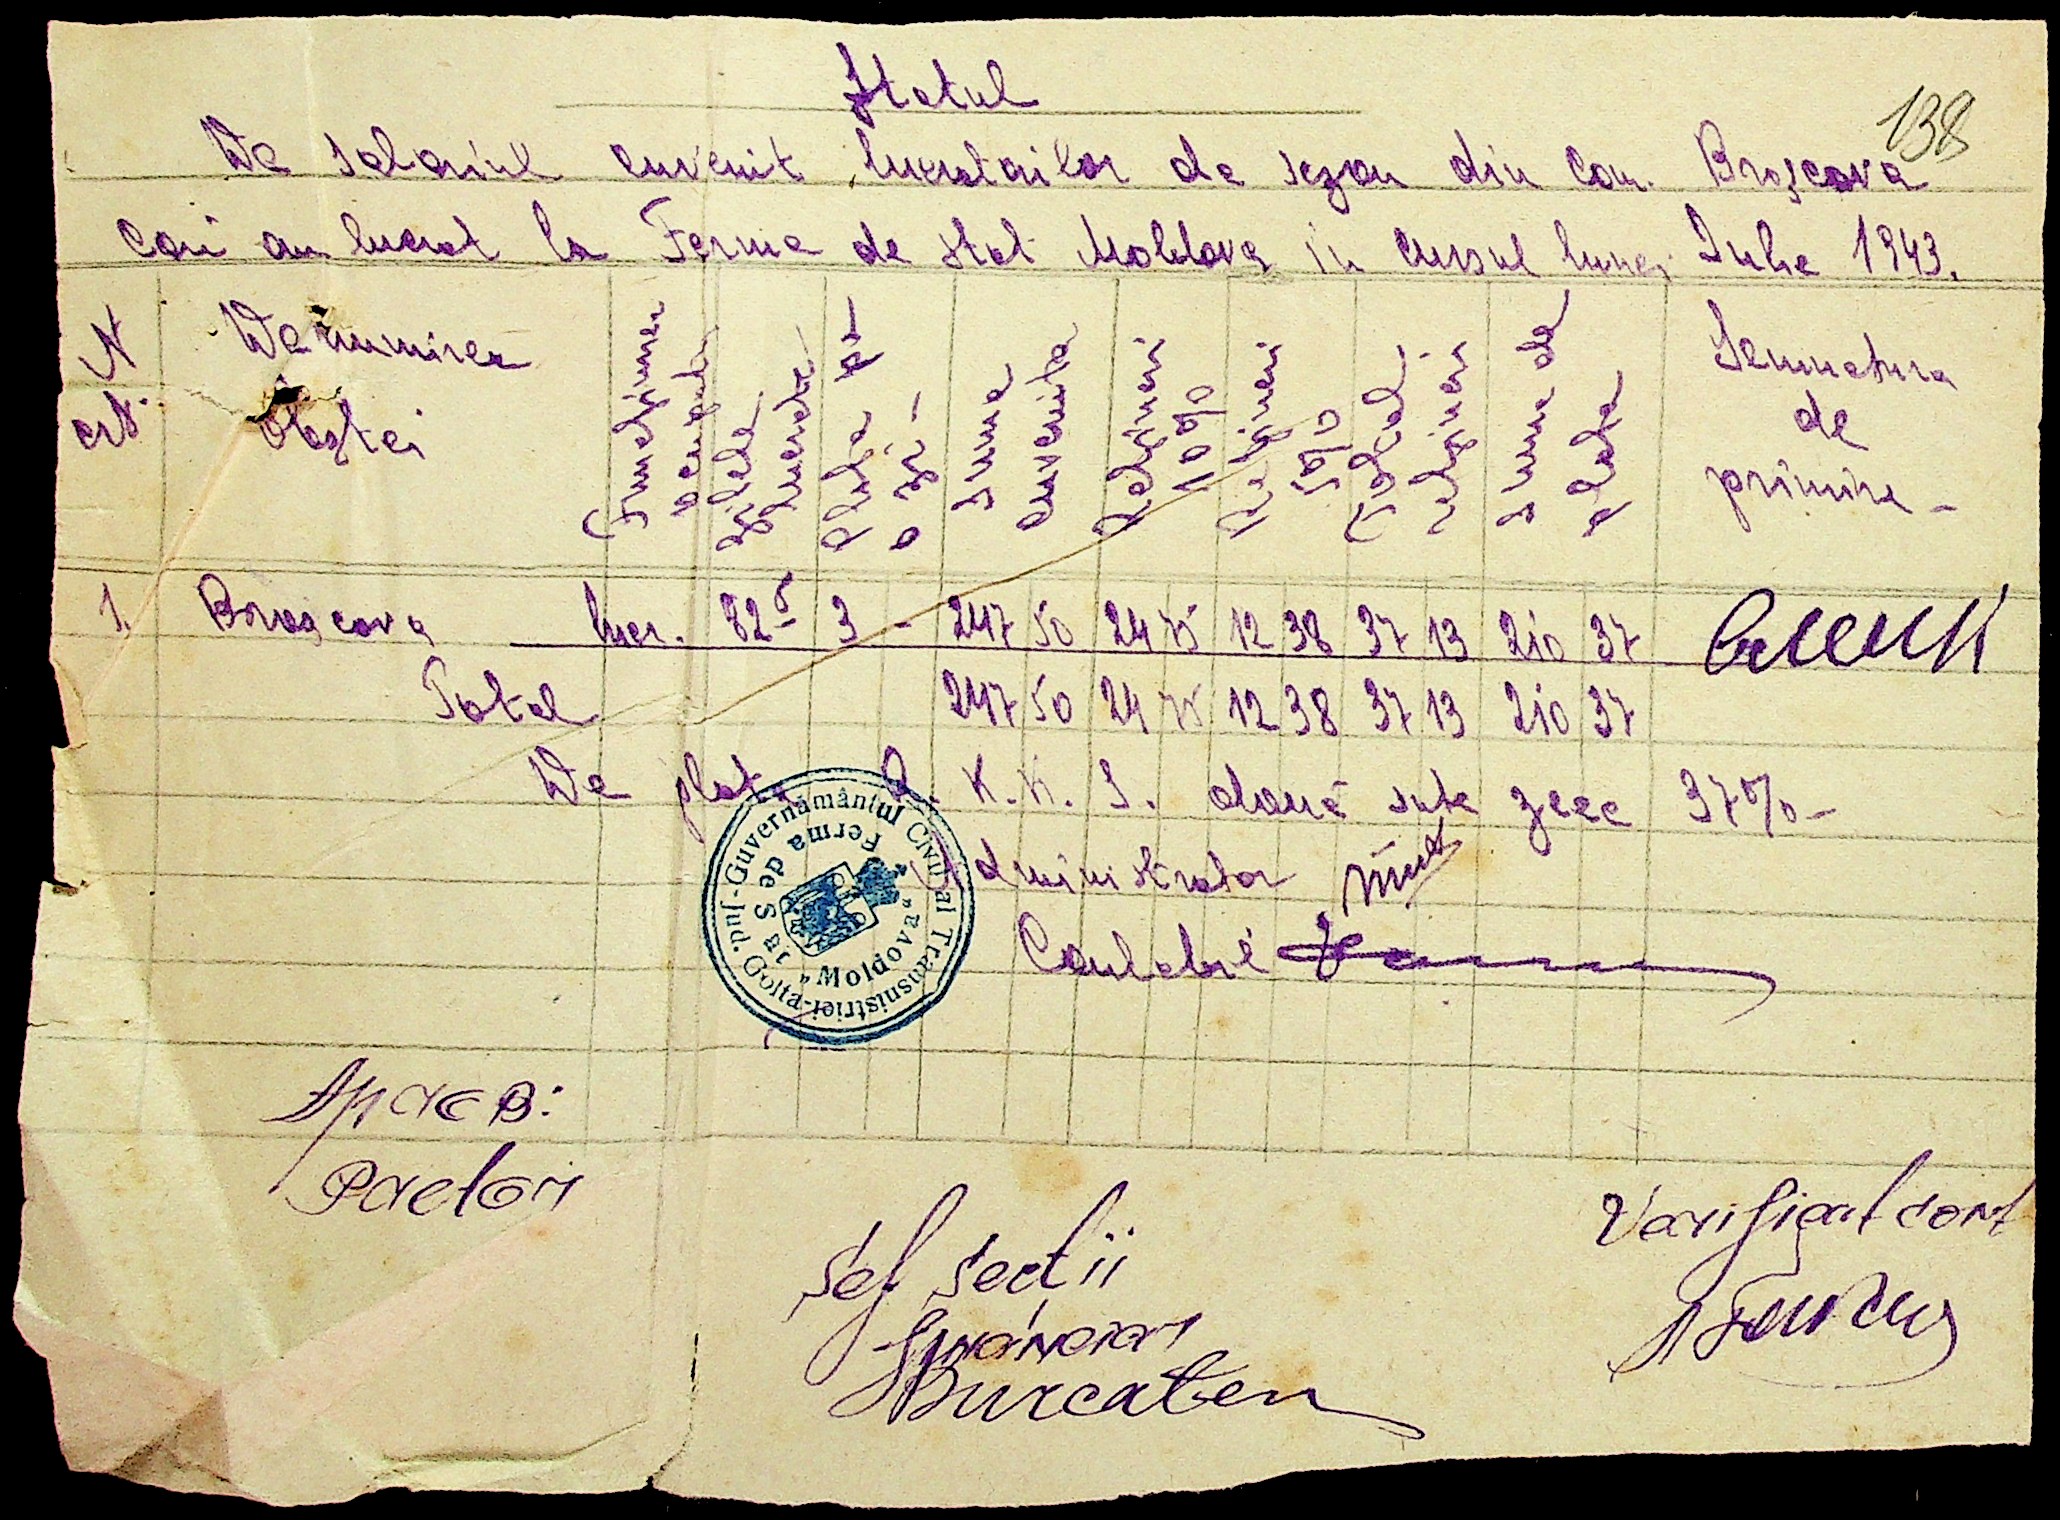 Statul
138
De salariul cuvenit lucratorilor de sezon din Com. Broșcova
cari au lucrat la Ferma de stat Moldova in cursul lunei Iulie 1943.
N crt.
Denumirea Obștei
Zilele lucrate
Plata pe o zi
Suma cuvenita
Rețineri 10%
Rețineri 5%
Total rețineri
Suma de plata
Semnatura de primire -
1. Broșcova lucr. 82 5 3 - 247 50 24 75 12 38 37 13 210 37
Total 247 50 24 75 12 38 37 13 210 37
De plata R.K.K.S. două sute zece 37% -
Administrator
Contabil
Guvernământul Civil al Transnistriei - Jud. Golta -
Ferma de Stat
„Moldova"
Șef secții
financiar
Verificat cont